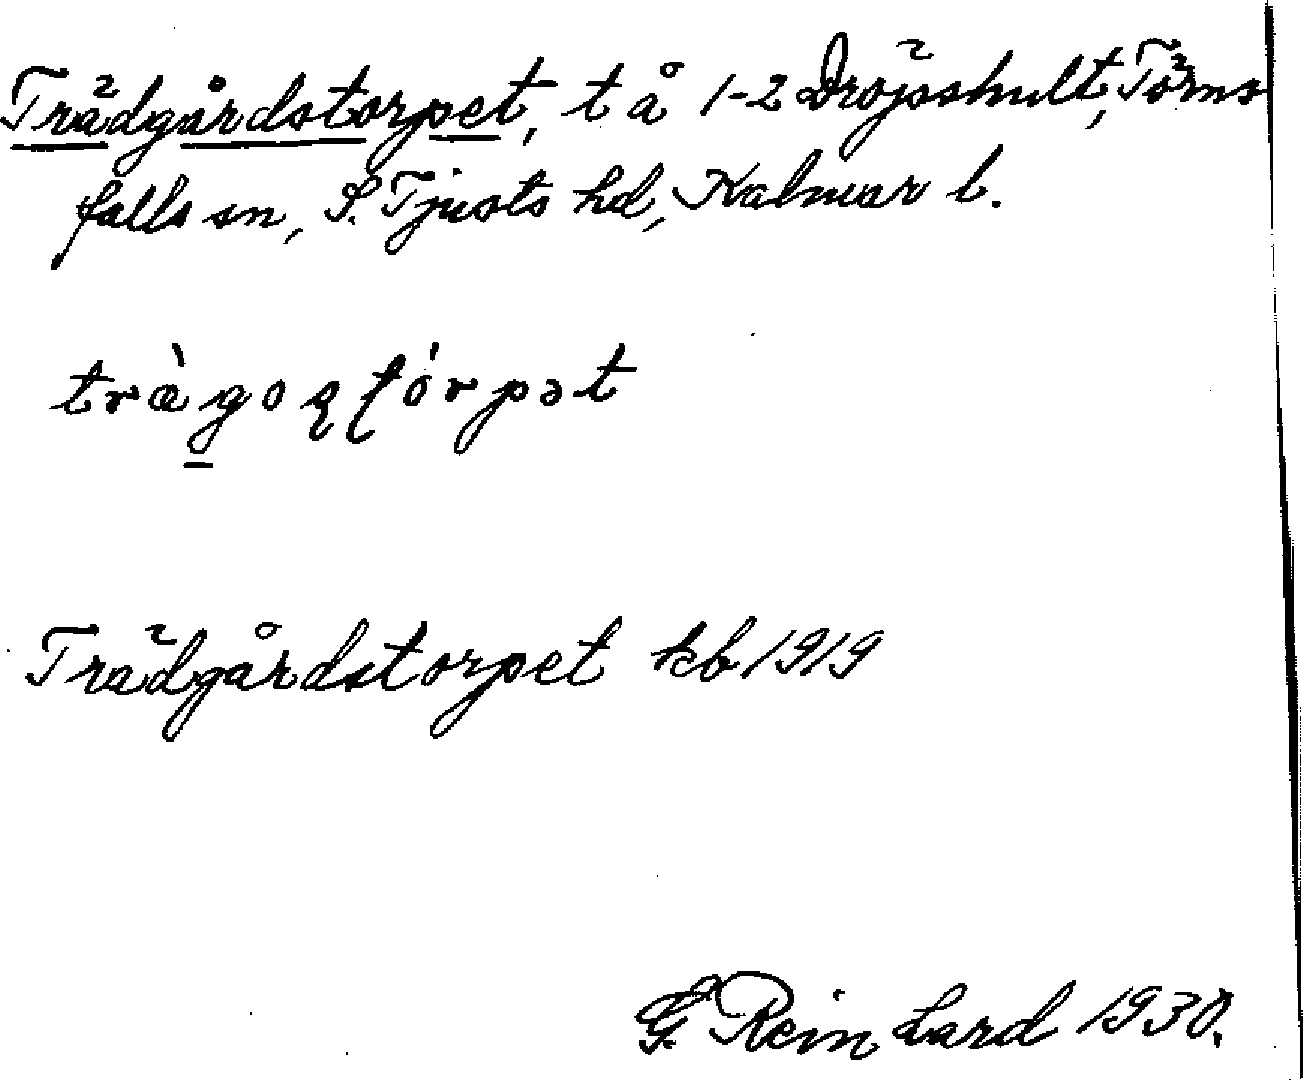 Trädgårdstorpet, t å 1-2 Dröjsshult, Törns
falls sn, S. Tjusts hd, Kalmar l.
Trädgårdstorpet kb 1919
G. Reinhard 1930.